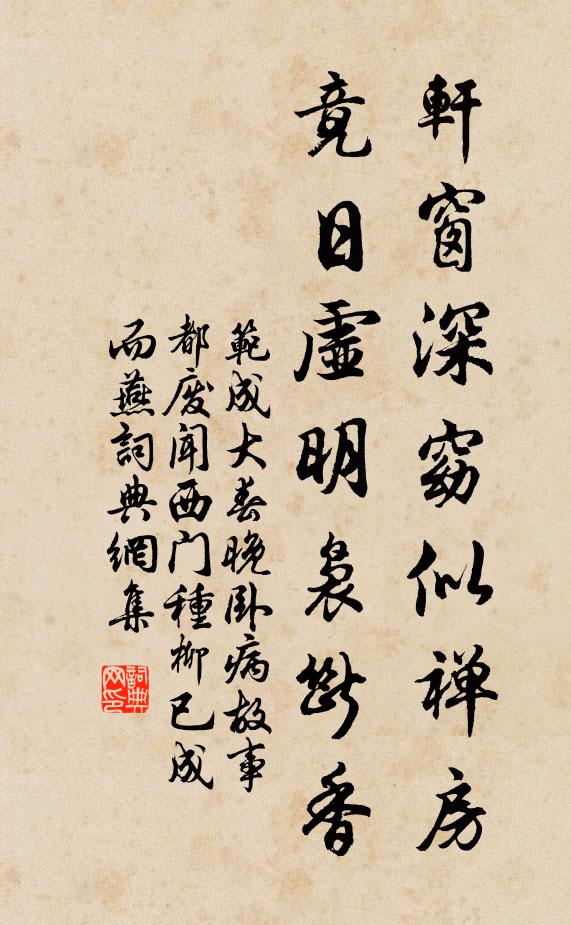 軒窗深窈似禅房
竟日虛明裊斷香
範成大春晚卧病故事
都废闻西门種柳已成
而燕詞典網集
詞典
网印